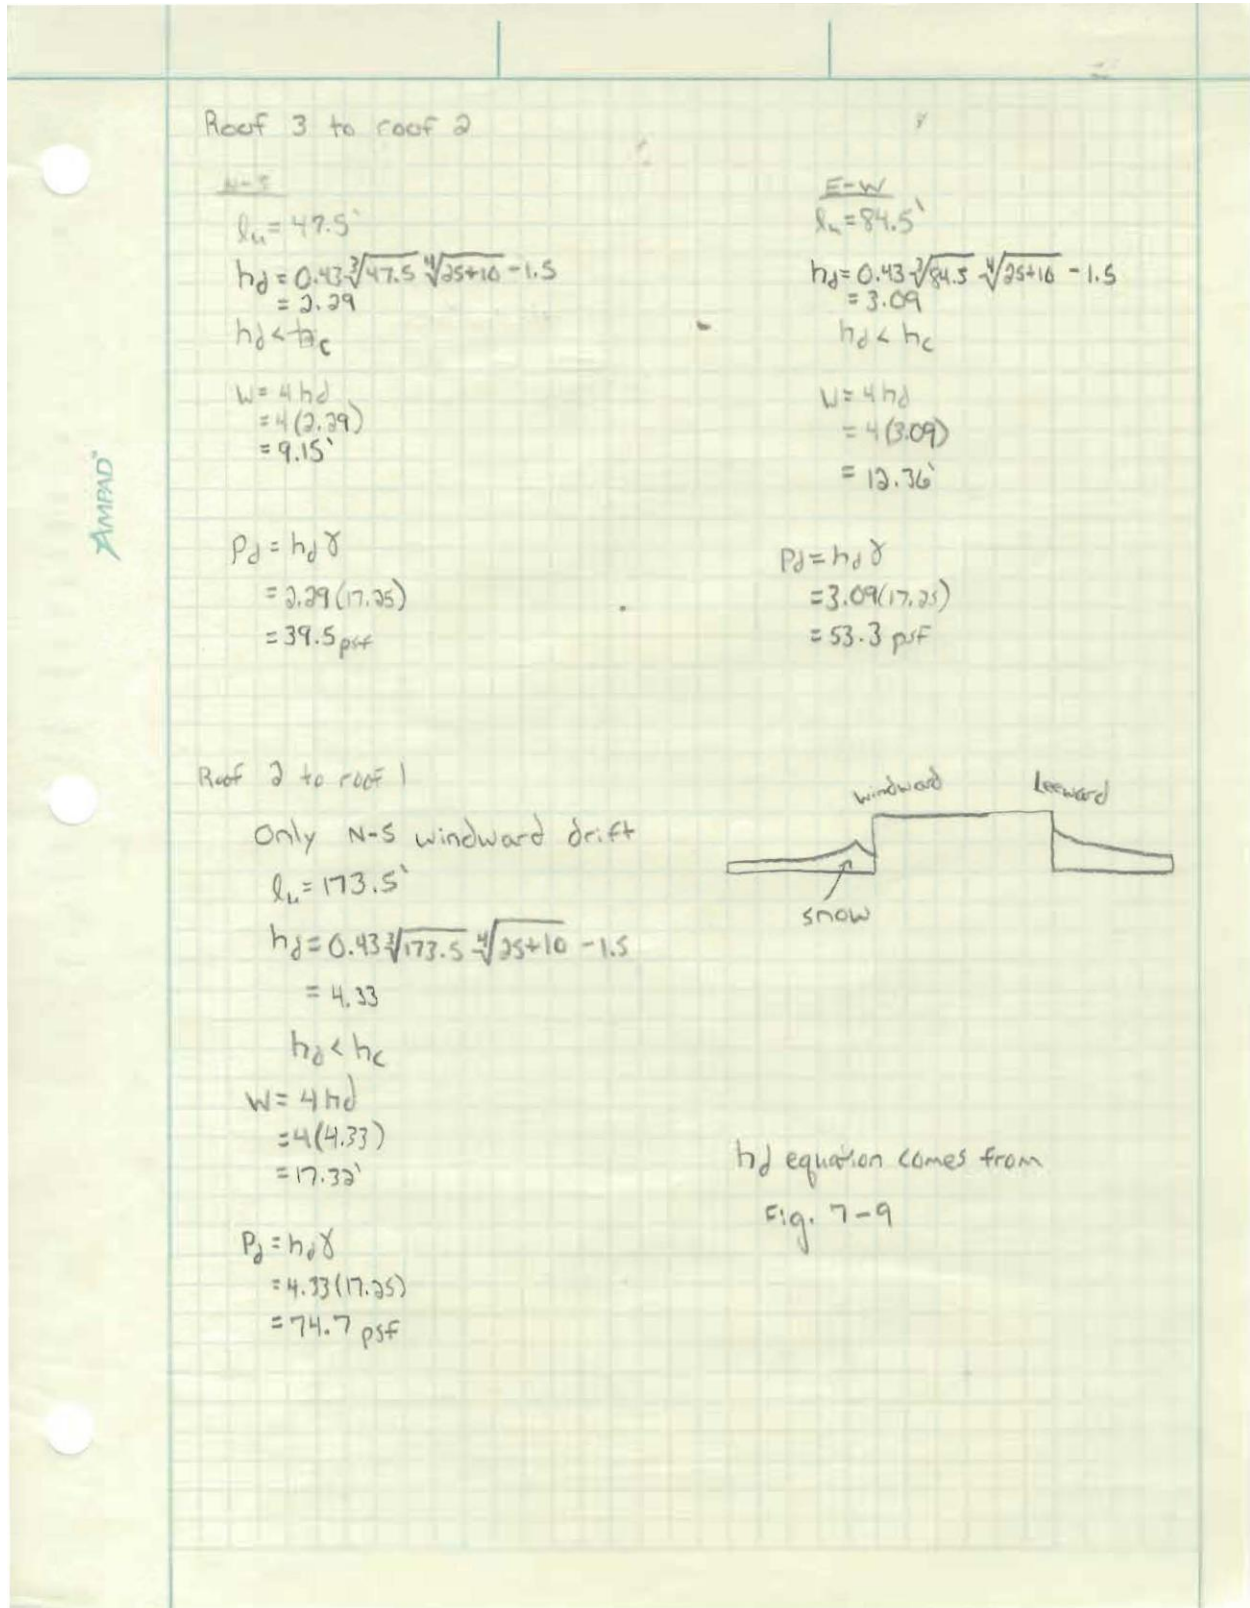 Roof 3 to roof 2
N-S
lu = 47.5'
hd = 0.43 ∛47.5 ∜25+10 - 1.5
= 2.29
hd < hc
W = 4hd
= 4(2.29)
= 9.15'
Pd = hdγ
= 2.29(17.25)
= 39.5 psf
E-W
lu = 84.5'
hd = 0.43 ∛84.5 ∜25+10 - 1.5
= 3.09
hd < hc
W = 4hd
= 4(3.09)
= 12.36'
Pd = hdγ
= 3.09(17.25)
= 53.3 psf
AMPAD
Roof 2 to roof 1
Only N-S windward drift
lu = 173.5'
hd = 0.43 ∛173.5 ∜25+10 - 1.5
= 4.33
hd < hc
W = 4hd
= 4(4.33)
= 17.32'
Pd = hdγ
= 4.33(17.25)
= 74.7 psf
windward
Leeward
snow
hd equation comes from
Fig. 7-9